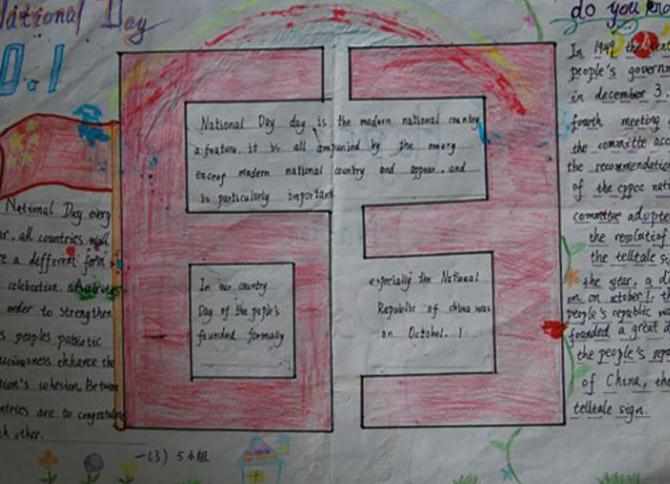 National Day
0.1
National Day every
all countries
a different form
celebration activities
order to strengthen
s peoples patriotic
enhance the
cohesion. Between
ntries are to congratulate
ch other.
National Day day is the modern national country
a feature, it is all ampanied by the emerg
enceof modern national country and appear, and
is particularly important
In our country
Day of the people's
founded formally
especially the National
Republic of china was
on October. 1
一(3) 5小组
do you know
In 1949 the
people's govern
in december 3.
fourth meeting
the committe acc
the recommendation
of the cppcc nat
committe adop
the resolution of
the telltale si
the year, a d
on october 1.
people's republic wa
founded a great
the people's repu
of China, the
telltale sign.